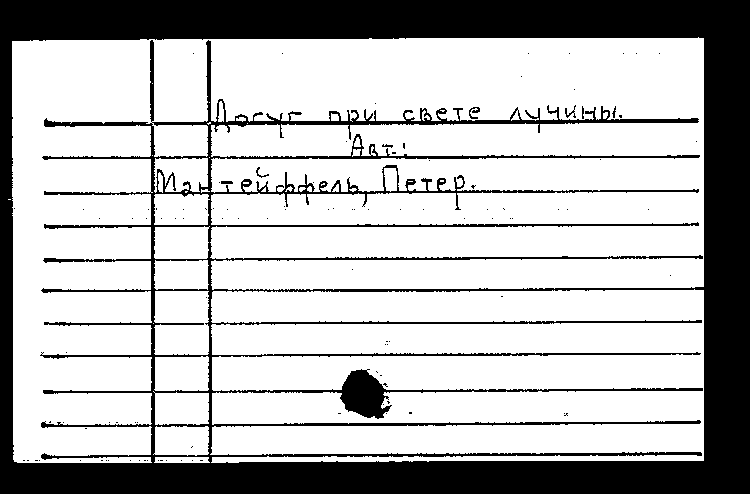 Досуг при свете лучины.
Авт.:
Мантейффель, Петер.